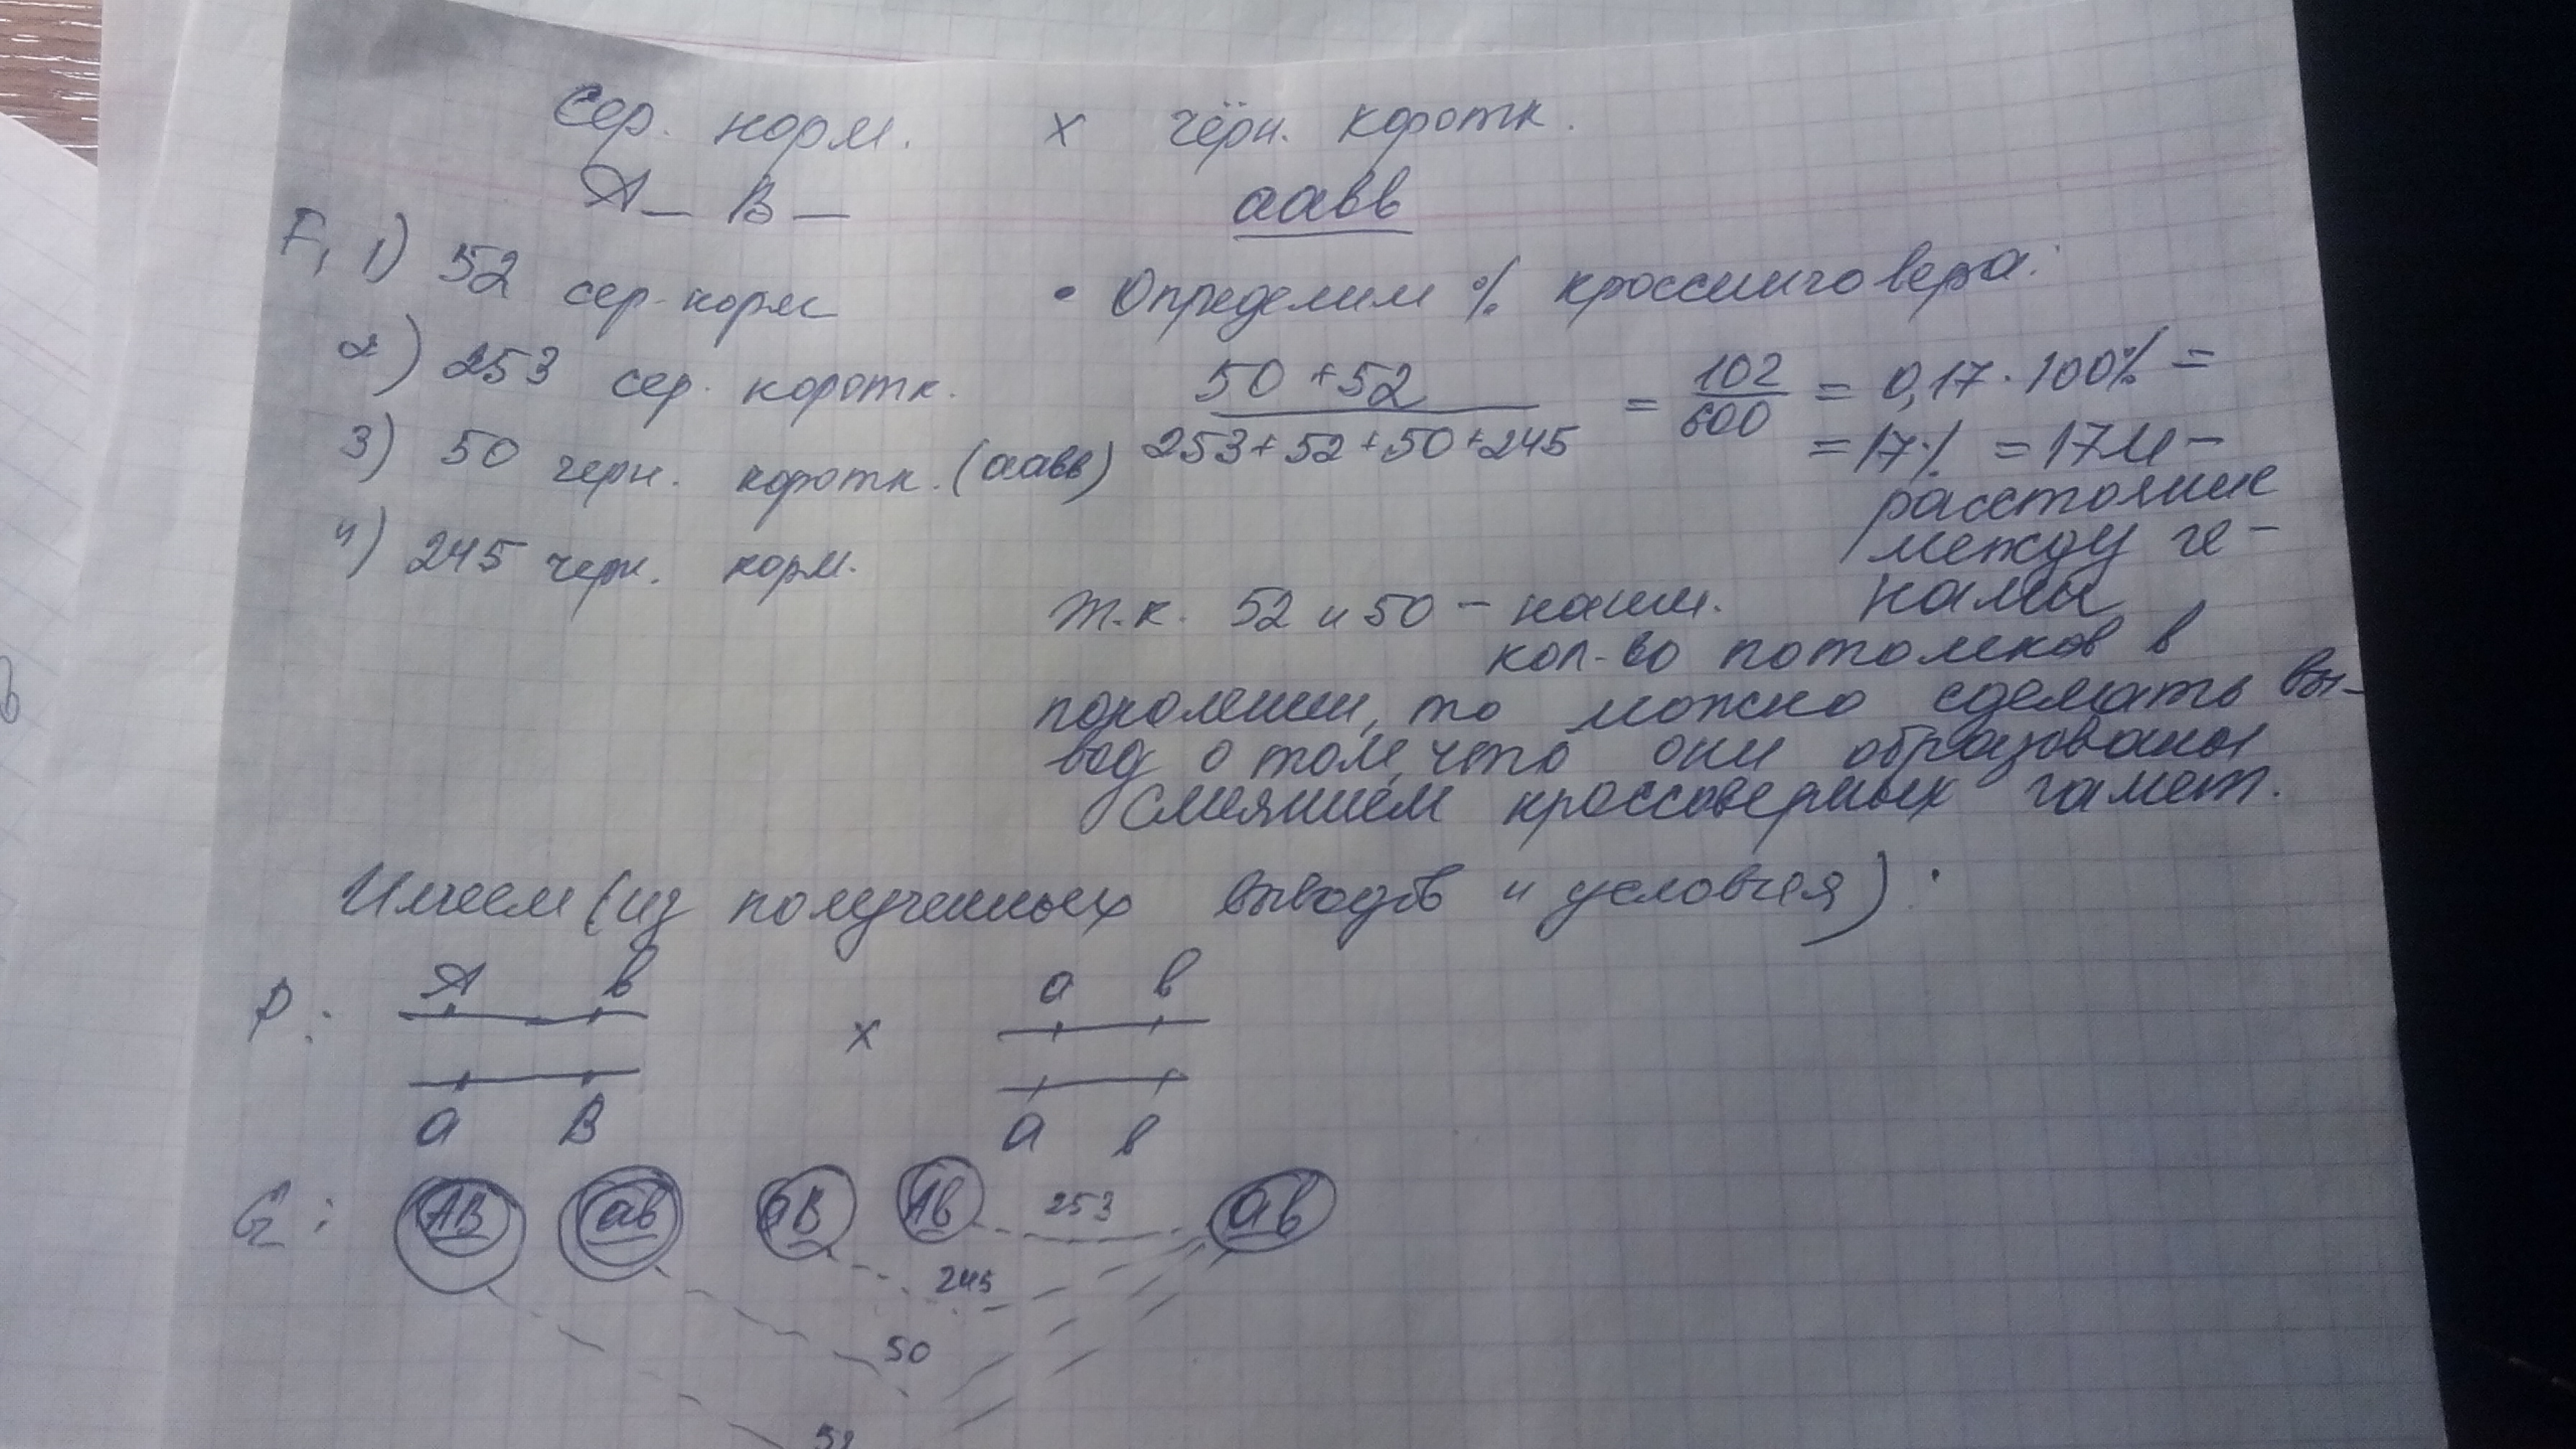 Сер. норм. х чёрн. коротк.
А_ В_ аавв
F₁ 1) 52 сер. норм
2) 253 сер. коротк.
3) 50 черн. коротк. (аавв)
4) 245 черн. норм.
• Определим % кроссинговера:
50 + 52 / 253 + 52 + 50 + 245 = 102 / 600 = 0,17 · 100% =
= 17% = 17М –
расстояние
между ге-
нами
т.к. 52 и 50 – наим.
кол-во потомков в
поколении, то можно сделать вы-
вод о том, что они образованы
слиянием кроссоверных гамет.
Имеем (из полученных выводов и условия):
Р: А в х а в
а В а в
G: АВ ав аВ Ав 253 ав
245
50
52